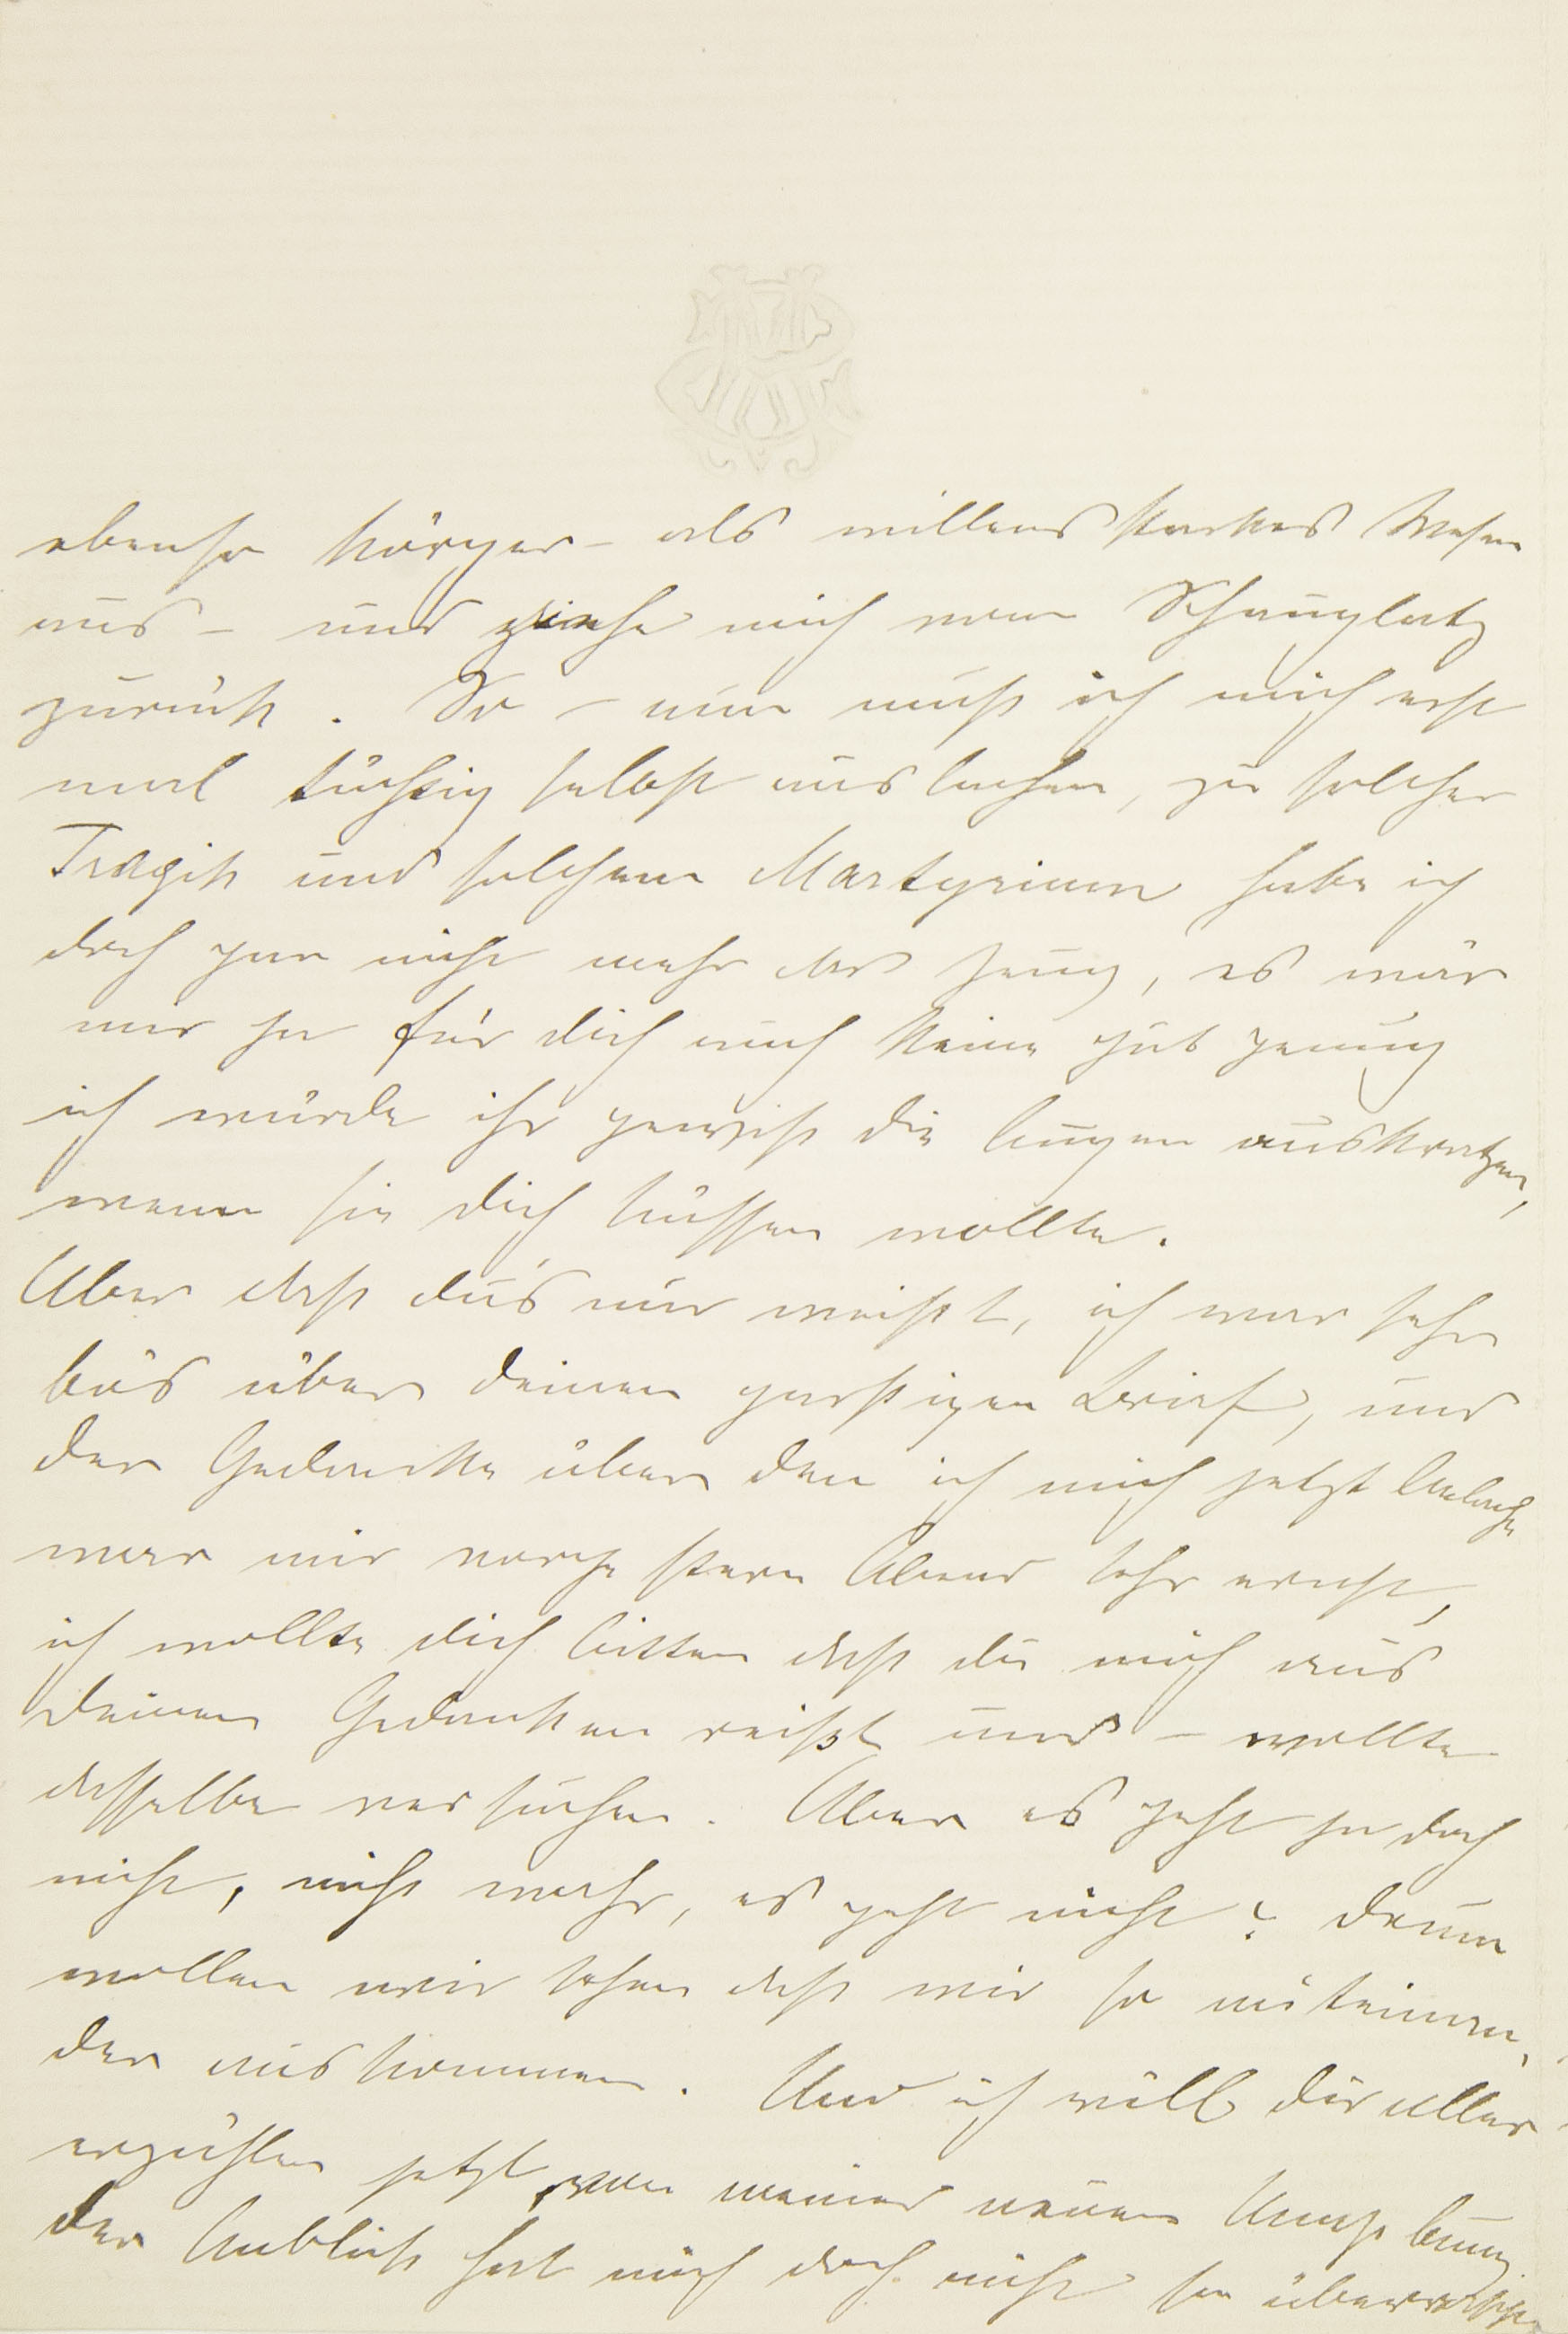 ebenso körper- als willensstarkes Wesen
aus – und ziehe mich vom Schauplatz
zurück. So – nun muß ich mich erst
mal tüchtig selbst auslachen, zu solcher
Tragik und solchem Martyrium habe ich
doch gar nicht mehr das Zeug, es wär
mir ja für dich auch Keine gut genug
ich würde ihr gewiß die Augen auskratzen,
wenn sie dich küssen wollte.
Aber daß du's nur weißt, ich war sehr
bös über deinen garstigen Brief, und
der Gedanke über den ich mich jetzt belache
war mir vorgestern Abend sehr ernst,
ich wollte dich bitten daß du mich aus
deinen Gedanken reißt und – wollte
dasselbe versuchen. Aber es geht ja doch
nicht, nicht wahr, es geht nicht? Drum
wollen wir sehen daß wir so miteinan-
der auskommen. Und ich will dir alles
erzählen jetzt, von meiner neuen Umgebung.
Der Anblick hat mich doch nicht so